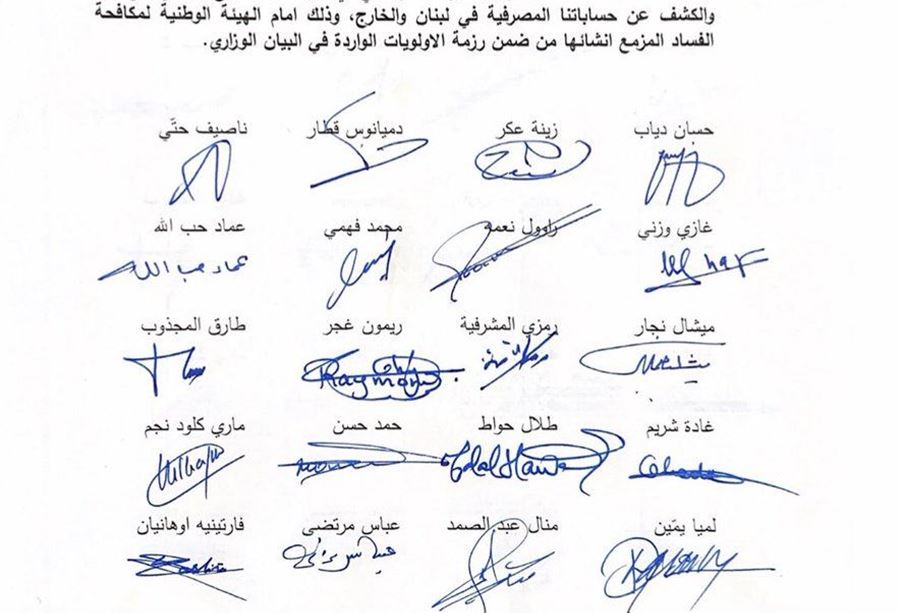 والكشف عن حساباتنا المصرفية في لبنان والخارج، وذلك امام الهيئة الوطنية لمكافحة
الفساد المزمع انشائها من ضمن رزمة الاولويات الواردة في البيان الوزاري.
حسان دياب زينة عكر دميانوس قطار ناصيف حتّي
غازي وزني راوول نعمه محمد فهمي عماد حب الله
عماد حب الله
ميشال نجار رمزي المشرفية ريمون غجر طارق المجذوب
Raymond
غادة شريم طلال حواط حمد حسن ماري كلود نجم
Talal Hawat
Ghada
لميا يمّين منال عبد الصمد عباس مرتضى فارتينيه اوهانيان